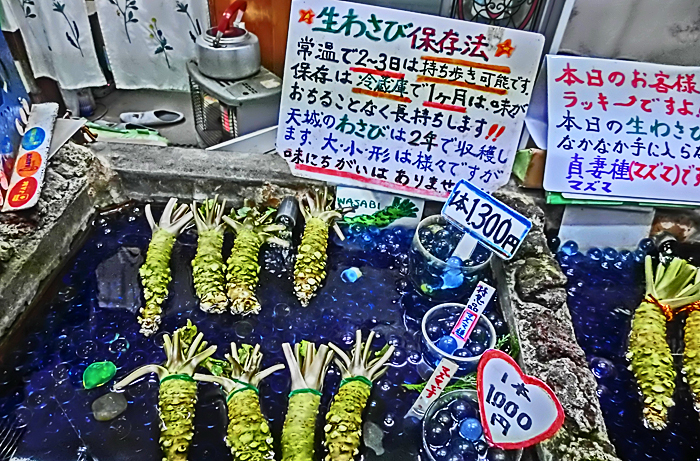 生わさび保存法
常温で2~3日は持ち歩き可能です
保存は冷蔵庫で1ヶ月は味が
おちることなく長持ちします!!
天城のわさびは2年で収穫し
ます、大・小・形は様々ですが
味にちがいはありません
本日のお客様
ラッキーですよ
本日の生わさ
なかなか手に入らな
真妻種(マズマ)です
マズマ
WASABI
1本1300円
1本
1000
円